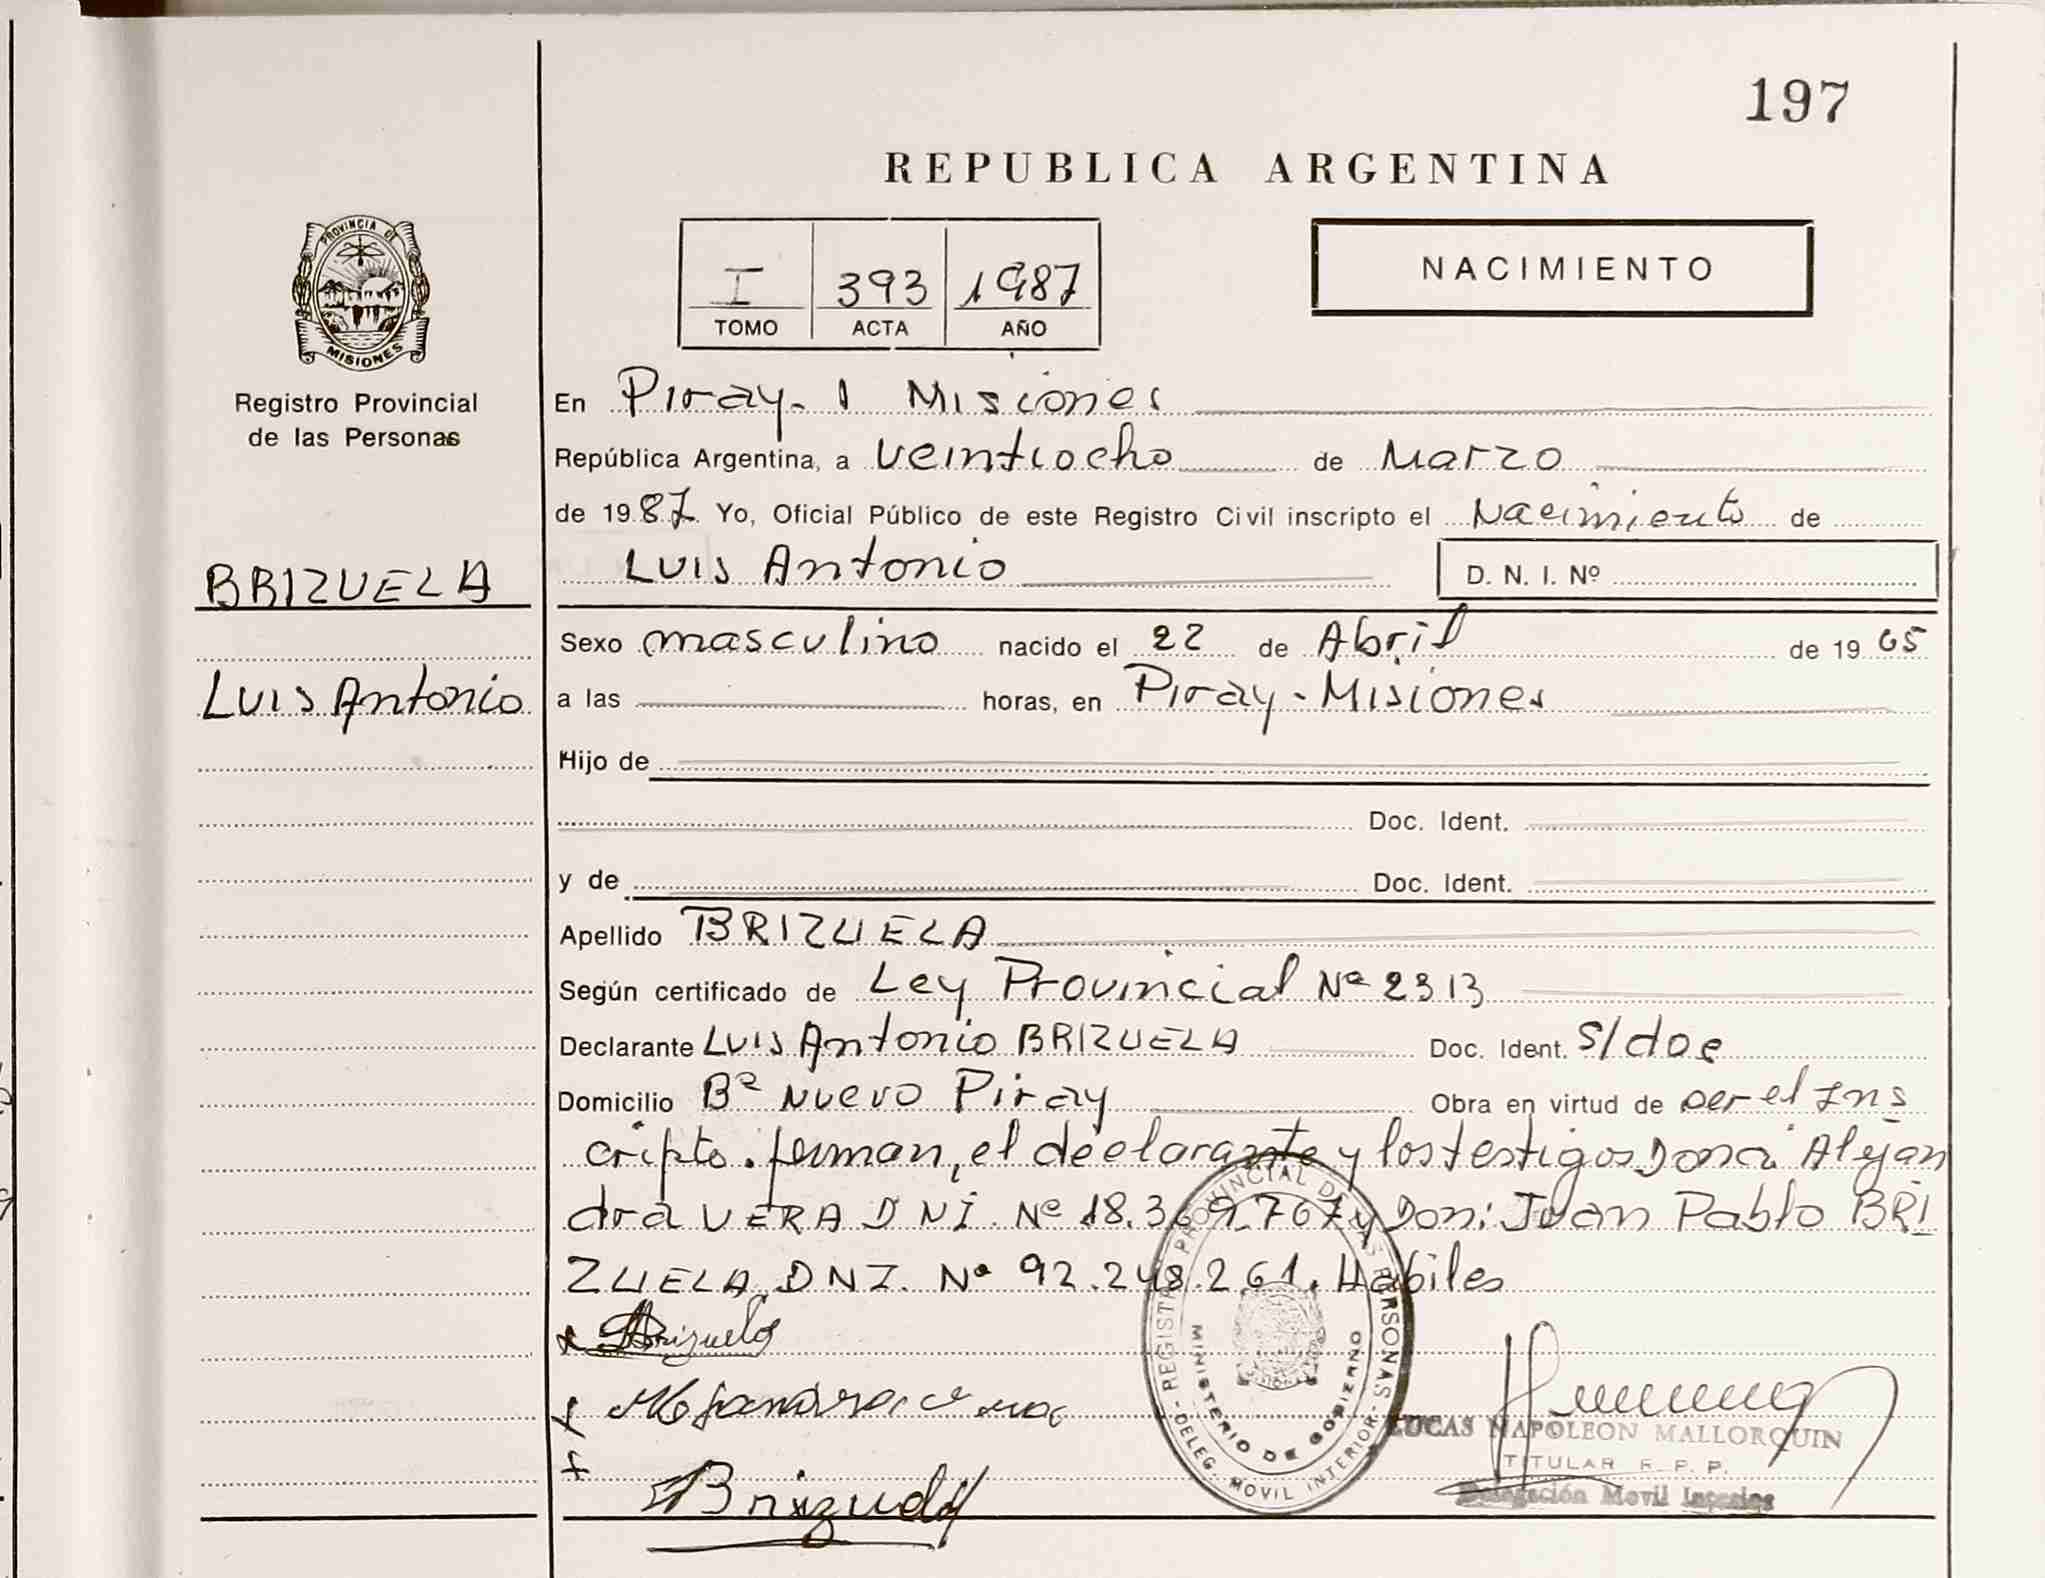 197
REPUBLICA ARGENTINA
PROVINCIA DE
MISIONES
Registro Provincial
de las Personas
I 393 1987
TOMO ACTA AÑO
NACIMIENTO
En Piray-1 Misiones
República Argentina, a veintiocho de Marzo
de 1987 Yo, Oficial Público de este Registro Civil inscripto el Nacimiento de
BRIZUELA
Luis Antonio
D. N. I. Nº
Sexo masculino nacido el 22 de Abril de 1965
Luis Antonio
a las horas, en Piray-Misiones
Hijo de
Doc. Ident.
y de Doc. Ident.
Apellido BRIZUELA
Según certificado de Ley Provincial Nº 2313
Declarante Luis Antonio BRIZUELA Doc. Ident. s/doc
Domicilio Bº Nuevo Piray Obra en virtud de ser el Ins
cripto. firman, el declarante y los testigos Dona Alejan
dra VERA DNI. Nº 18.369.767 y Don: Juan Pablo BRI
ZUELA, DNI. Nº 92.248.261. Habiles
Brizuela
Alejandra Vera
Brizuela
REGISTRO PROVINCIAL DE LAS PERSONAS
MINISTERIO DE GOBIERNO
- DELEG. MOVIL INTERIOR -
LUCAS NAPOLEON MALLORQUIN
TITULAR R. P. P.
Delegación Movil Interior